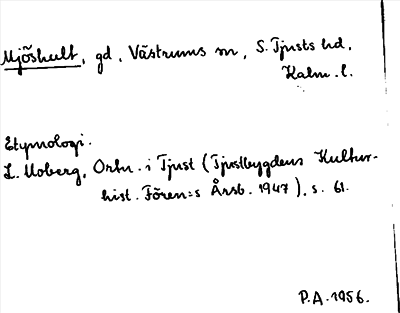 Mjöshult, gd, Västrums sn, S. Tjusts hd,
Kalm. l.
Etymologi.
L. Moberg, Ortn. i Tjust (Tjustbygdens Kultur-
hist. Fören:s Årsb. 1947), s. 61.
P.A. 1956.